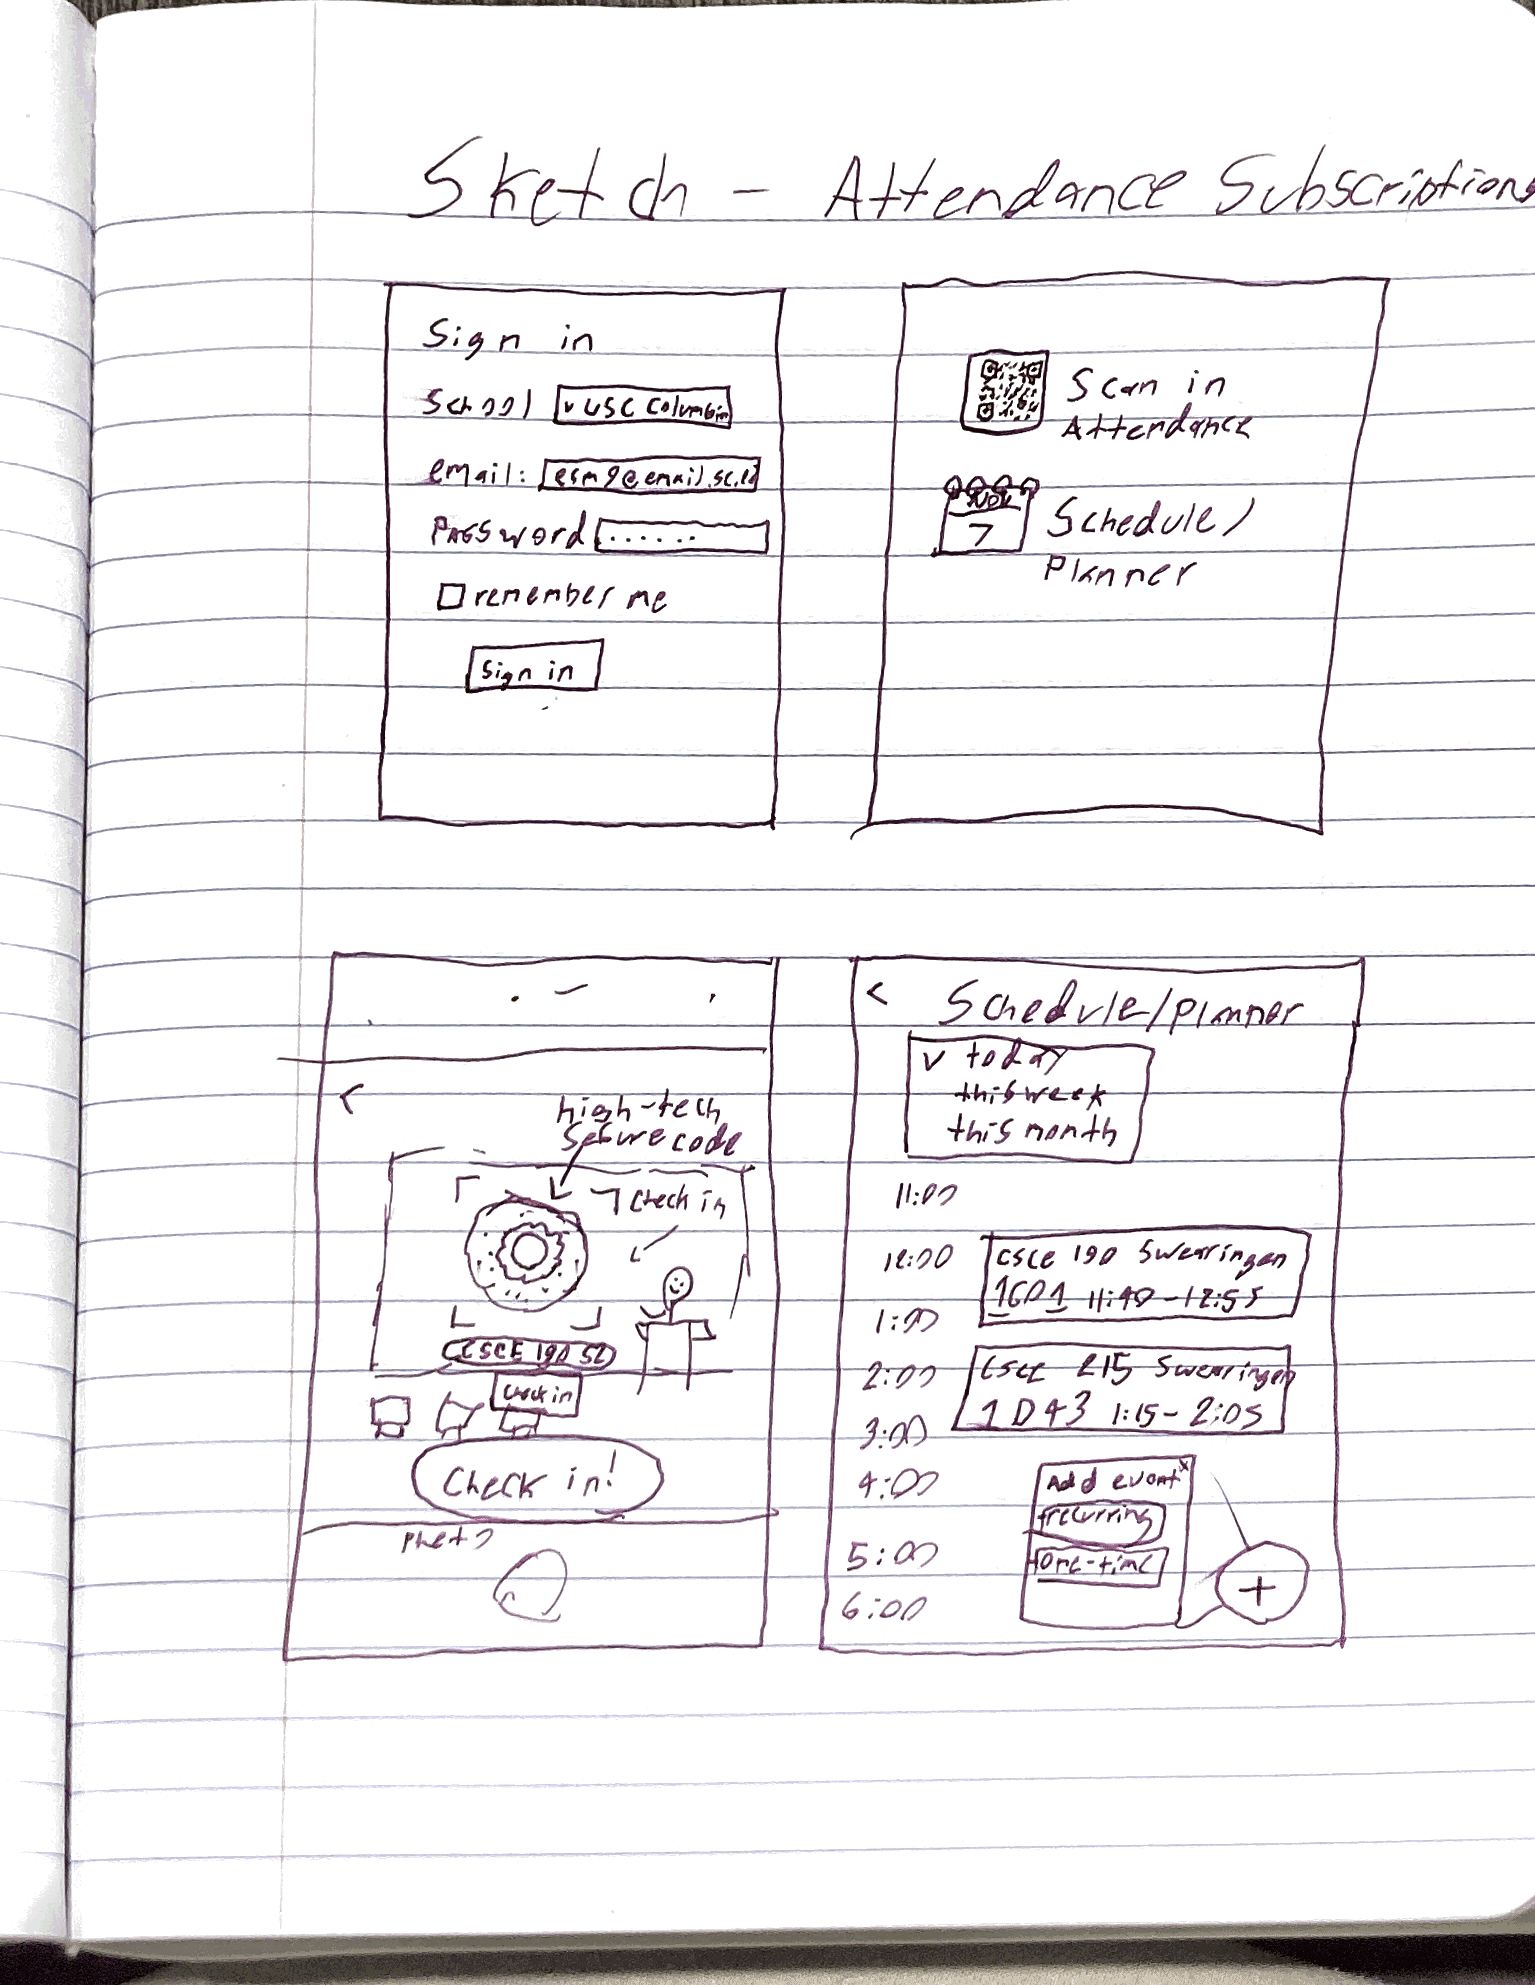 Sketch - Attendance Subscriptions
Sign in
School v USC Columbia
email: esm9@email.sc.ed
Password ......
remember me
Sign in
Scan in
Attendance
Nov
7
Schedule/
Planner
<
high-tech
secure code
check in
CSCE 190 S2
check in
Check in!
Photo
< Schedule/planner
v today
this week
this month
11:00
12:00
1:00
2:00
3:00
4:00
5:00
6:00
CSCE 190 Swearingen
1G01 11:40-12:55
CSCE 215 Swearingen
1D43 1:15-2:05
Add event x
+recurring
+one-time
+